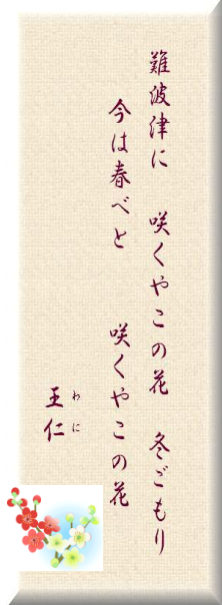 難波津に 咲くやこの花 冬ごもり
今は春べと 咲くやこの花
王仁
わに